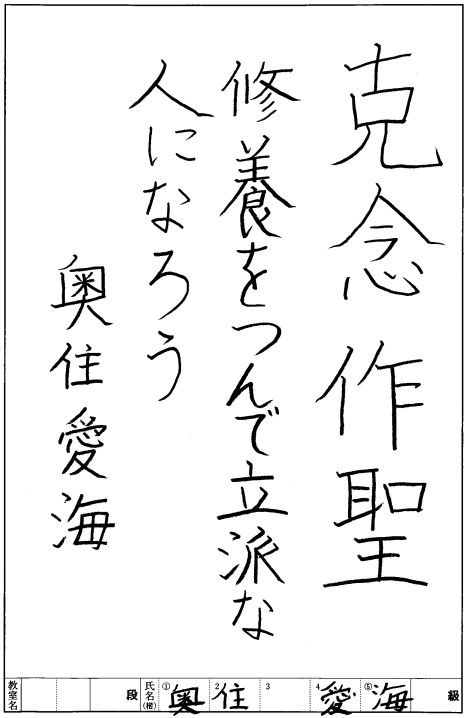 克念作聖
修養をつんで立派な
人になろう
奥住愛海
教室名 段 氏名(楷) ① 奥 2 住 3 4 愛 ⑤ 海 級